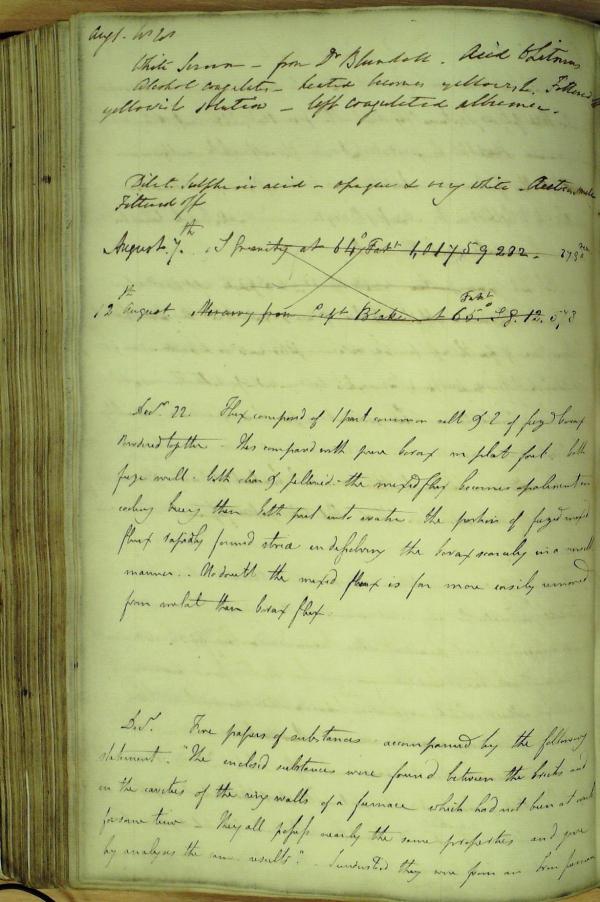 White Serum - from Dr Blundell. Acid & Litmus
Alcohol coagulates - heated becomes yellowish. Filtered off
yellowish solution - left coagulated albumen.
Dilute Sulphuric acid - opaque & very white
Filtered off
August. 7th. S Gravity at 64° Faht 1,01759232.
12th August Mercury from Capt Blake at 65° Faht S g. 12.
Decr 22. Flux composed of 1 part common salt & 2 of fuzed borax
powdered together. This compared with pure borax in plat foil. both
fuze well. both clear & pellucid - the mixed flux becomes opalescent on
cooling being then both put into water the portion of fuzed mixed
flux rapidly formed striæ in dissolving the borax scarcely in a visible
manner. No doubt the mixed flux is far more easily removed
from metal than borax flux.
Decr. Five papers of substances accompanied by the following
statement. "The enclosed substances were found between the bricks and
in the cavities of the ring walls of a furnace which had not been at work
for some time - They all possess nearly the same properties and give
by analysis the same results". - Suspected they were from an Iron furnace